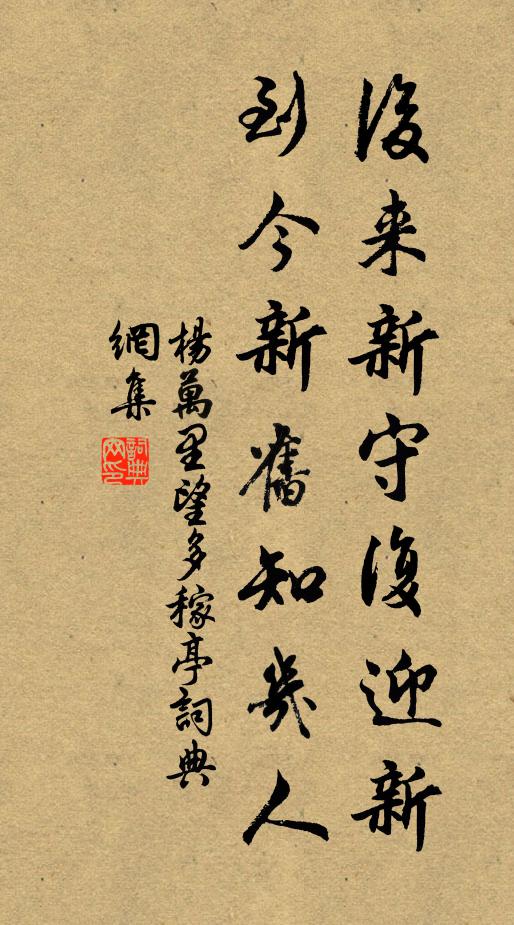 後来新守復迎新
到今新舊知幾人
楊萬里望多稼亭詞典
網集
詞典
网印